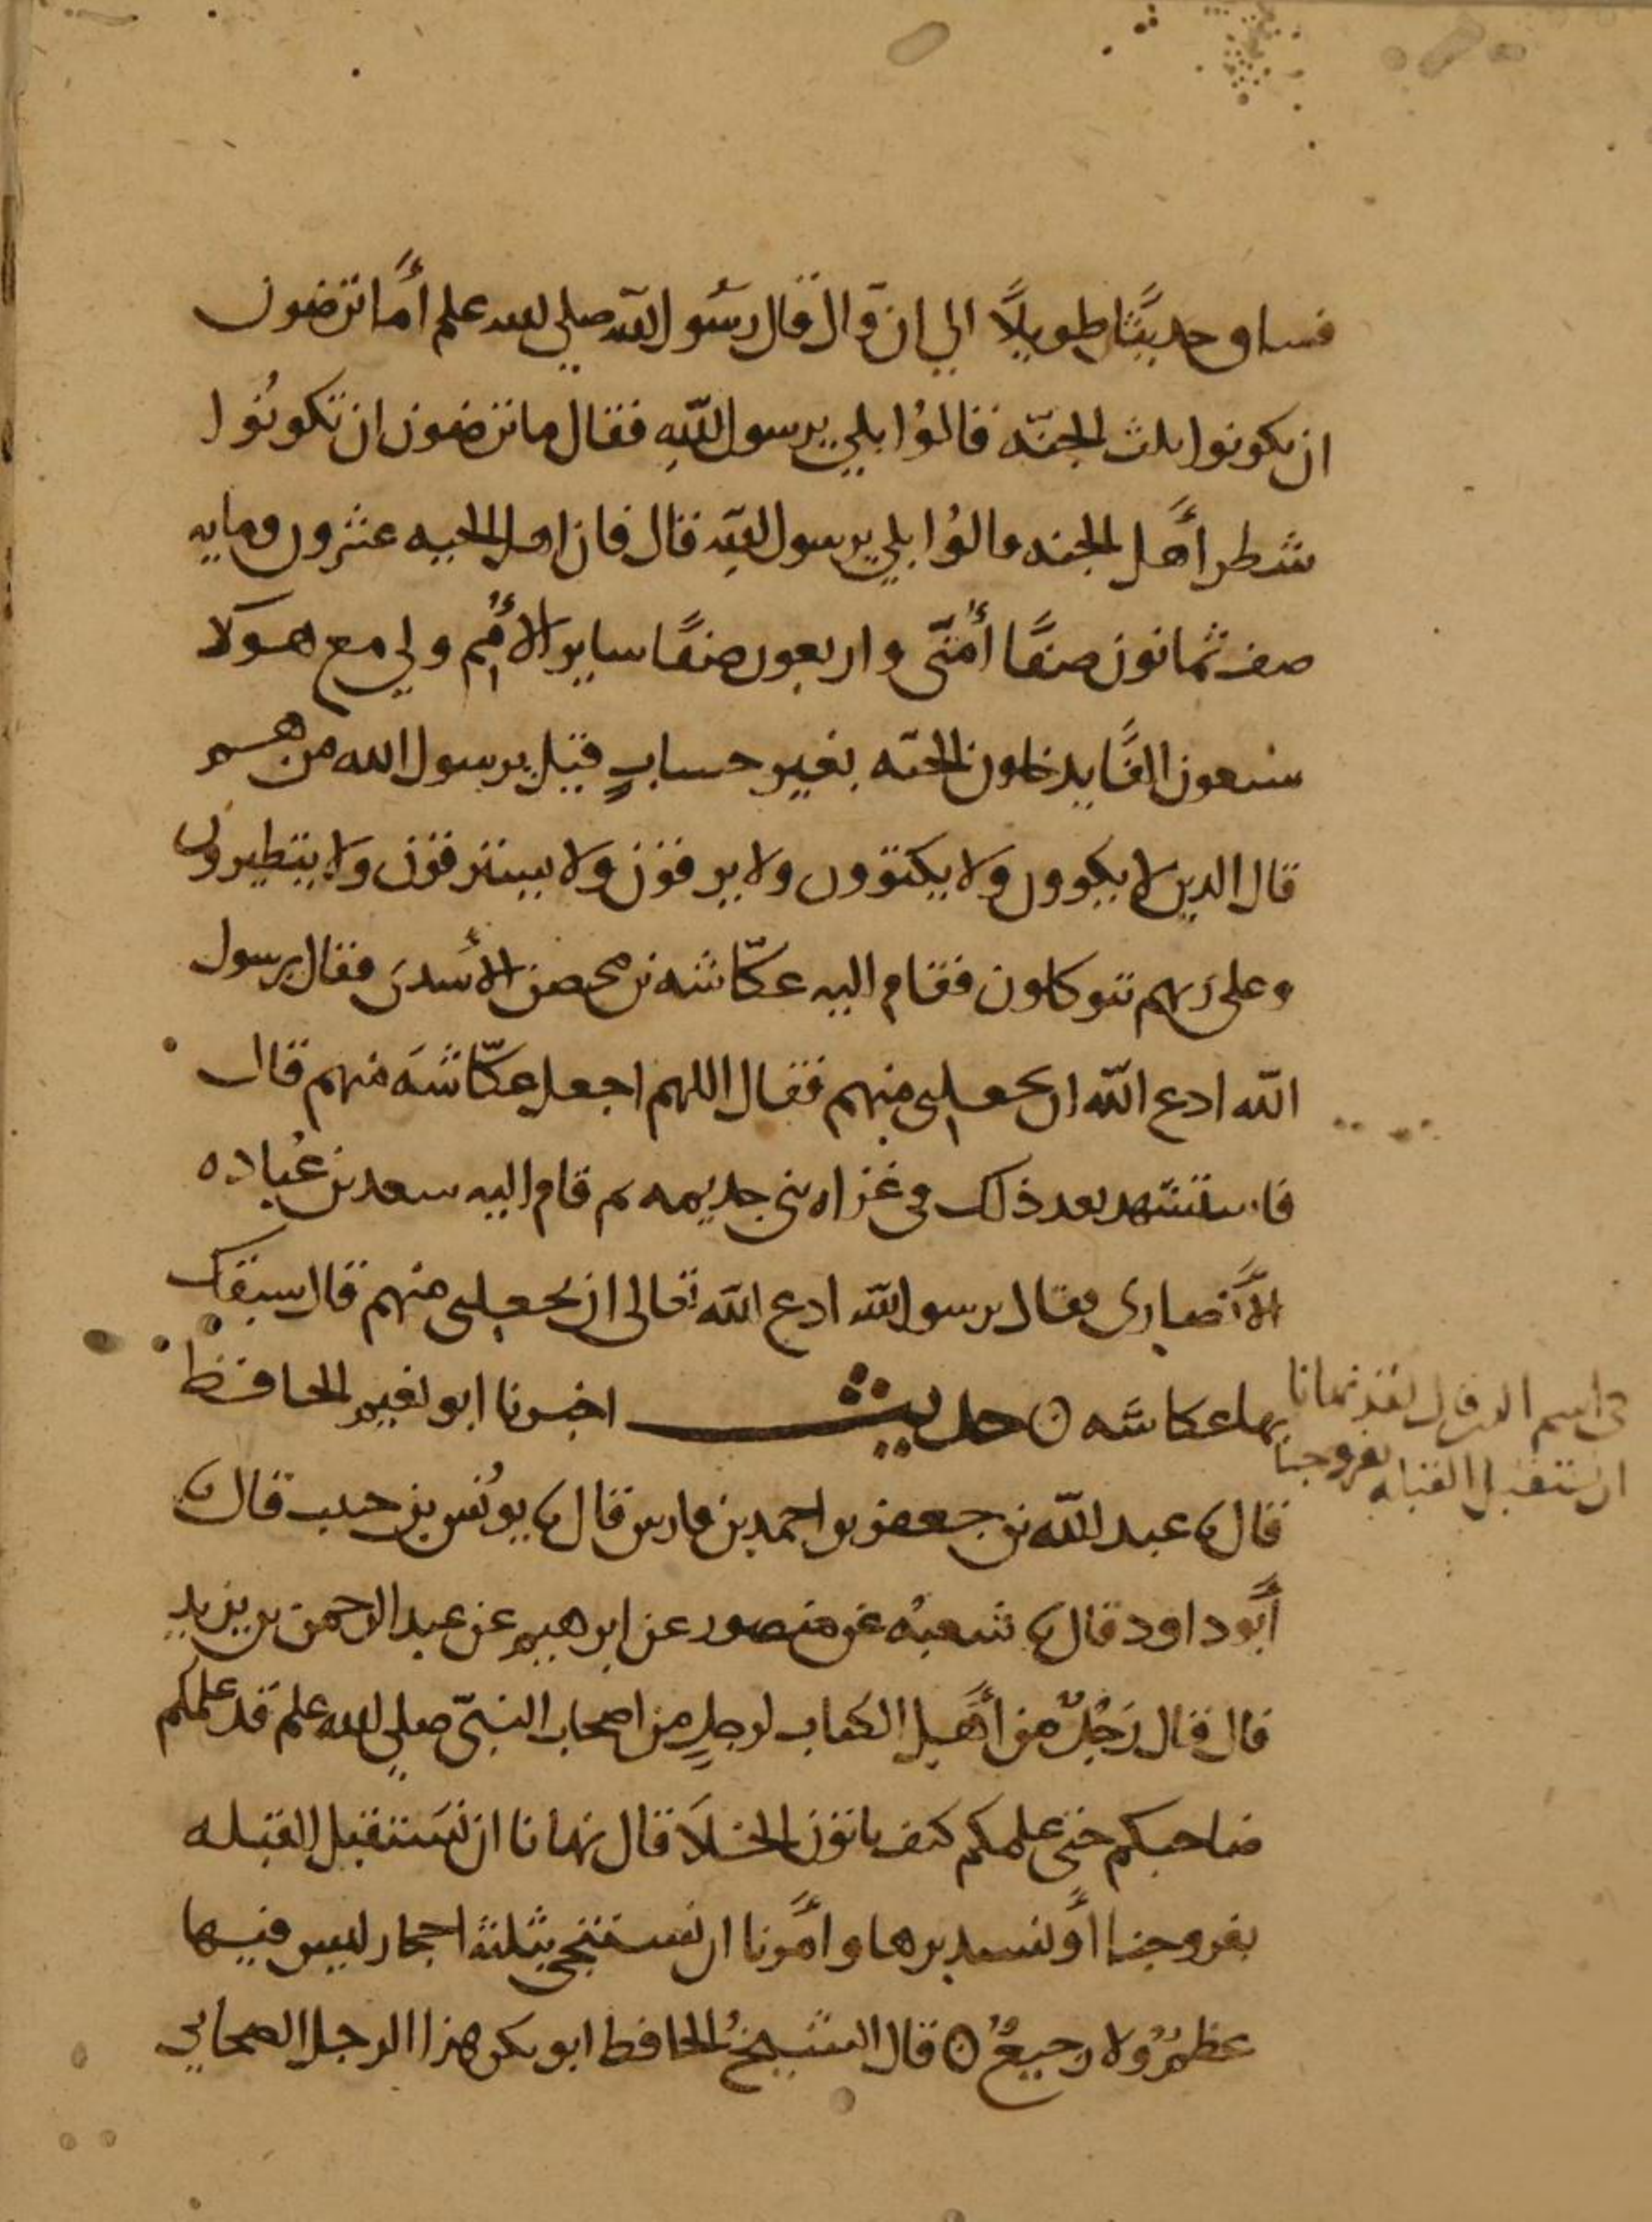 فساق حديثًا طويلاً الي ان قال قال رسول الله صلي الله علم أما ترضون
ان يكونوا ثلث الجنّه قالوُا بلي يرسول اللهِ فقال ما ترضون ان تكونوُا
شطر أهل الجنه قالوُا بلي يرسول اللهِ قال فان اهل الجنه عشرون ومايه
صف ثمانون صفًا أُمتّى واربعون صفًا ساير الأُمم ولي مع هولا
سبعون الفًا يدخلون الجنّه بغير حسابٍ قيل يرسول الله من هم
قال الدين لا يكوون ولا يكتوون ولا يرقون ولا يسترقون ولا يتطيرون
وعلى رَبهم تتوكلون فقام اليه عكّاشه بن محصن الأسدىَ فقال يرسول
الله ادع الله ان يجعلنى منهم فقال اللهم اجعل عكّاشَه منهم قال
فاستشهد بعد ذلك فى غزاه بنى جديمه ثم قام اليه سعد بن عُباده
الأنصارى فقال يرسول الله ادع الله تعالى ان يجعلنى منهم قال سبقك
بها عكاشَه ⊙ حديث اخبرنا ابو نعيم الحافظ
قال ثنا عبد الله بن جعفر بن احمد بن فارس قال ثنا يونُس بن حبيب قال ثنا
أبَو داود قال ثنا شعبهُ عن منصور عن ابرهيم عن عبد الرحمن بن يزيد
قال قال رَجُلٌ من أهَل الكتاب لرجلٍ من اصحاب النبىّ صلي الله علم قد علمكم
صاحبكم حتى علمكم كيف ياتون الخلاَ قال نهانا ان نسَتقبل القبله
بفروجنا أَو نستدبرها وأمَرنا ان نستنجي بثلثة احجار ليس فيها
عظمٌ ولا رجيعٌ ⊙ قال الشيخُ الحافظ ابو بكر هذا الرجل الصحابي
قال لقد نهانا
ان نستقبل القبله بفروجنا